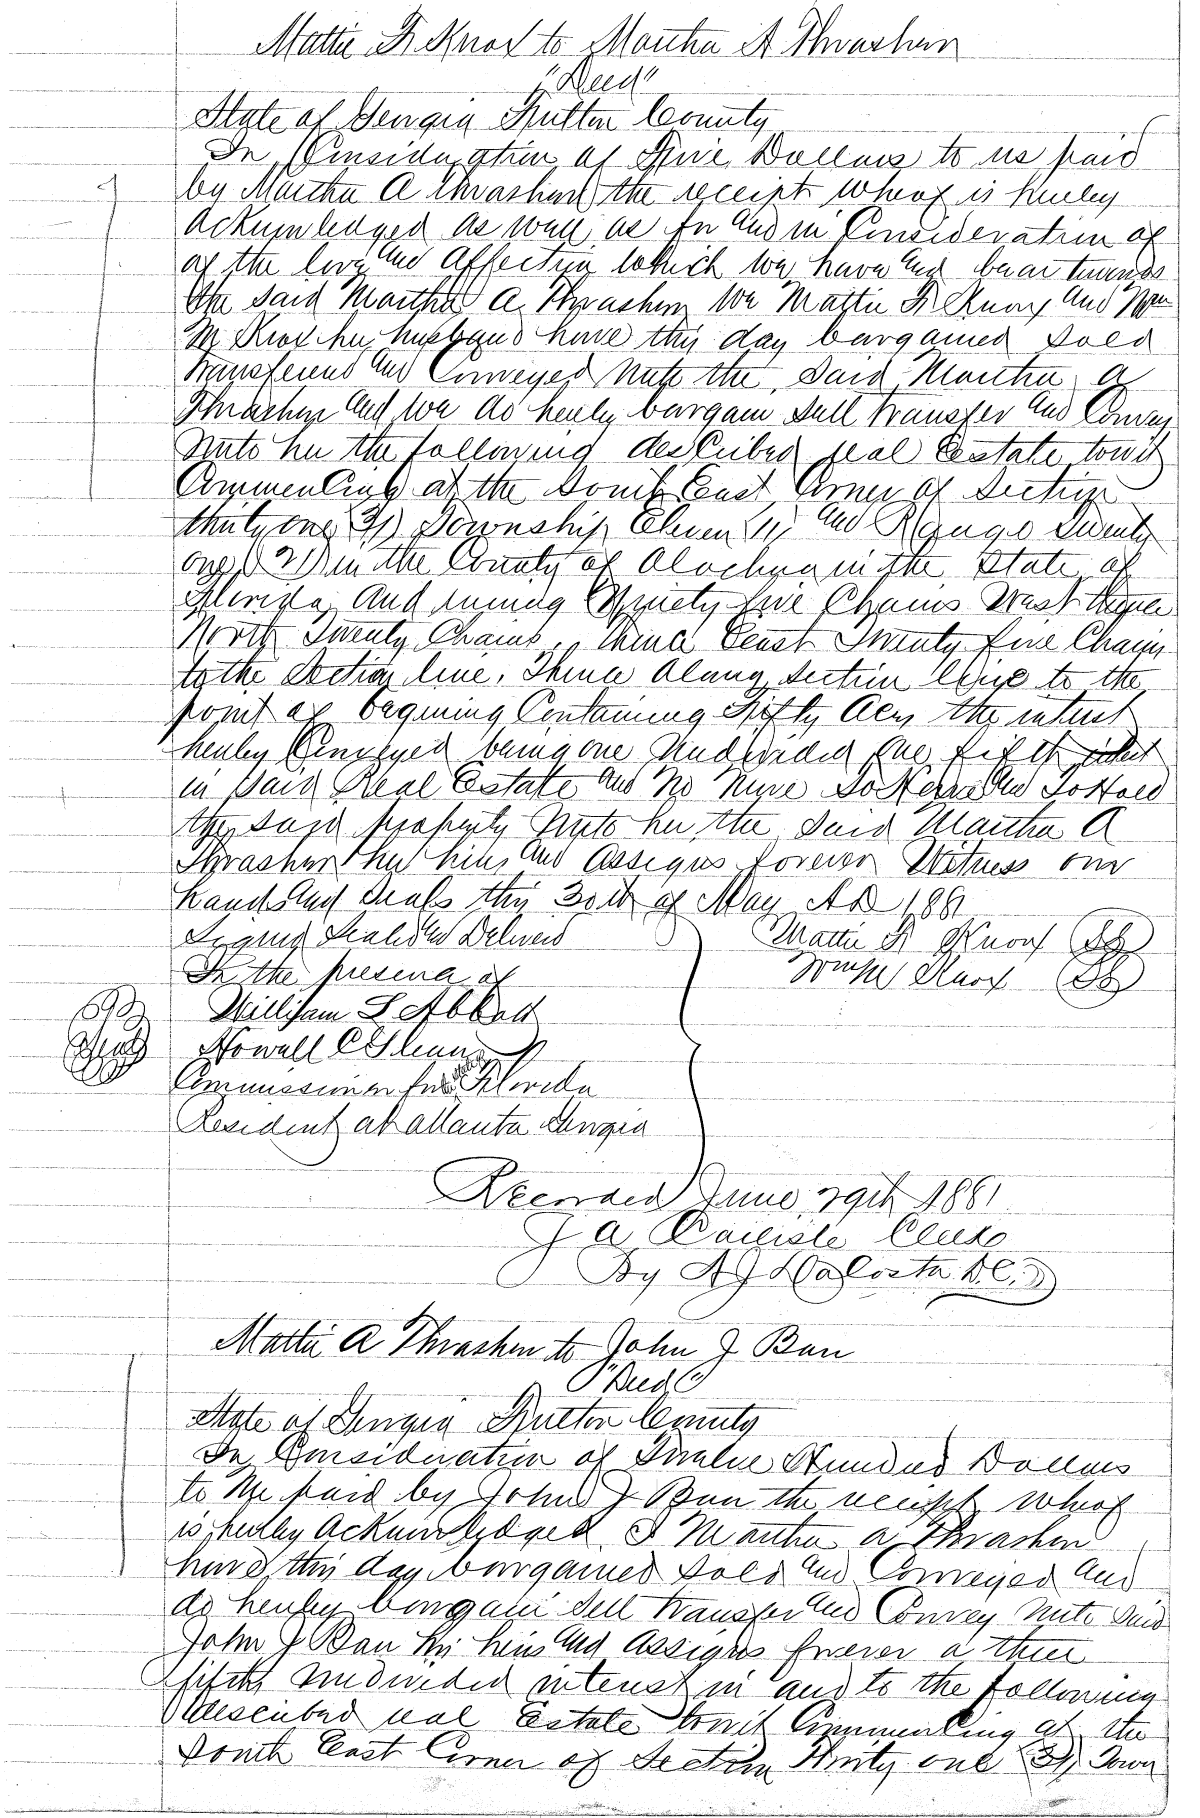 Mattie F. Knox to Martha A Thrasher
"Deed"
State of Georgia Fulton County
In Consideration of Five Dollars to us paid
by Martha A Thrasher the receipt whereof is hereby
Acknowledged as well as for and in Consideration of
of the love and Affection which we have and bear towards
the said Martha A Thrasher We Mattie F. Knox and Wm
M Knox her husband have this day bargained sold
transferred and Conveyed unto the said Martha A
Thrasher and we do hereby bargain sell transfer and Convey
unto her the following described real Estate towit
Commencing at the South East Corner of Section
thirty one (31) Township Eleven (11) and Range Twenty
one (21) in the County of Alachua in the State of
Florida And running Twenty five Chains West thence
North Twenty Chains, thence East Twenty five Chains
to the Section line, Thence Along Section line to the
point of begining Containing Fifty Acres the interest
hereby Conveyed being one undivided one fifth interest
in said Real Estate and no more To Have and To Hold
the said property unto her the said Martha A
Thrasher her heirs and Assigns forever Witness our
hands and seals this 30th of May AD 1881
Signed Sealed & Delivered
Mattie F. Knox
In the presence of
Wm M Knox
William S Abbott
Howell C Glenn
Commissioner for State of Florida
Seal
Resident at Atlanta Georgia
Recorded June 29th 1881
J A Carlisle Clerk
By A J DaCosta D.C.
Mattie A Thrasher to John J Barr
"Deed"
State of Georgia Fulton County
In Consideration of Twelve Hundred Dollars
to Me paid by John J Barr the receipt whereof
is hereby Acknowledged I Martha A Thrasher
have this day bargained sold and Conveyed and
do hereby bargain sell transfer and Convey unto said
John J Barr his heirs and Assigns forever a three
fifths undivided interest in and to the following
described real Estate towit Commencing at the
South East Corner of Section thirty one (31) Town